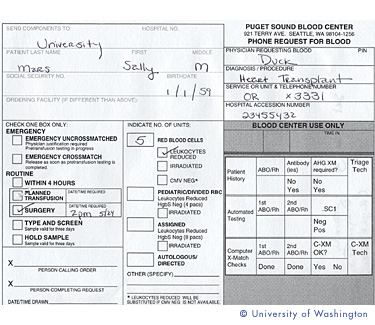 SEND COMPONENTS TO:
HOSPITAL NO.
University
PATIENT LAST NAME
FIRST
MIDDLE
Mars
Sally
M
SOCIAL SECURITY NO.
BIRTHDATE
1/1/59
ORDERING FACILITY (IF DIFFERENT THAN ABOVE)
PUGET SOUND BLOOD CENTER
921 TERRY AVE. SEATTLE, WA 98104-1256
PHONE REQUEST FOR BLOOD
PHYSICIAN REQUESTING BLOOD
PIN
Duck
DIAGNOSIS / PROCEDURE
Heart Transplant
SERVICE OR UNIT & TELEPHONE NUMBER
OR x3331
HOSPITAL ACCESSION NUMBER
23455432
CHECK ONE BOX ONLY:
EMERGENCY
EMERGENCY UNCROSSMATCHED
Physician justification required
Pretransfusion testing in progress/completed.
EMERGENCY CROSSMATCH
Release as soon as pretransfusion testing is completed.
ROUTINE
WITHIN 4 HOURS
PLANNED TRANSFUSION
DATE/TIME REQUIRED
SURGERY
DATE/TIME REQUIRED
2pm 5/24
TYPE AND SCREEN
Sample valid for three days
HOLD SAMPLE
Sample valid for three days
X
PERSON CALLING ORDER
X
PERSON COMPLETING REQUEST
DATE/TIME DRAWN
INDICATE NO. OF UNITS:
5
RED BLOOD CELLS
LEUKOCYTES REDUCED
IRRADIATED
CMV NEG*
PEDIATRIC/DIVIDED RBC
Leukocytes Reduced
HgbS Neg (8 pack)
IRRADIATED
ASSIGNED
Leukocytes Reduced
HgbS Neg (4 pack)
IRRADIATED
AUTOLOGOUS/
DIRECTED
OTHER (SPECIFY)
* LEUKOCYTES REDUCED WILL BE
SUBSTITUTED IF CMV NEG IS NOT AVAILABLE.
BLOOD CENTER USE ONLY
TIME IN
Patient History
1st ABO/Rh
2nd ABO/Rh
Antibody (ies)
No
Yes
AHG XM required?
No
Yes
Triage Tech
Automated Testing
1st ABO/Rh
2nd ABO/Rh
SC1
Neg
Pos
Computer X-Match Checks
1st ABO/Rh
Done
2nd ABO/Rh
Done
C-XM OK?
Yes No
C-XM Tech
© University of Washington